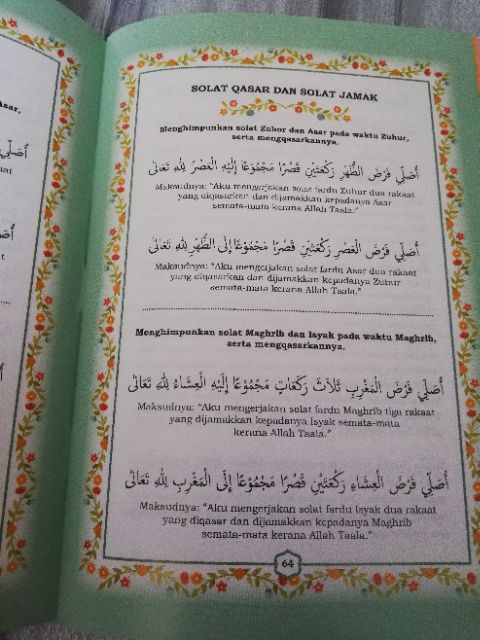 asar,
أُصَلِّي
at
SOLAT QASAR DAN SOLAT JAMAK
Menghimpunkan solat Zohor dan Asar pada waktu Zuhur,
serta mengqasarkannya.
أُصَلِّي فَرْضَ الظُّهْرِ رَكْعَتَيْنِ قَصْرًا مَجْمُوعًا إِلَيْهِ الْعَصْرُ لِلّٰهِ تَعَالَى
Maksudnya: "Aku mengerjakan solat fardu Zuhur dua rakaat
yang diqasarkan dan dijamakkan kepadanya Asar
semata-mata kerana Allah Taala."
أُصَلِّي فَرْضَ الْعَصْرِ رَكْعَتَيْنِ قَصْرًا مَجْمُوعًا إِلَى الظُّهْرِ لِلّٰهِ تَعَالَى
Maksudnya: "Aku mengerjakan solat fardu Asar dua rakaat
yang diqasarkan dan dijamakkan kepadanya Zuhur
semata-mata kerana Allah Taala."
Menghimpunkan solat Maghrib dan Isyak pada waktu Maghrib,
serta mengqasarkannya.
أُصَلِّي فَرْضَ الْمَغْرِبِ ثَلَاثَ رَكَعَاتٍ مَجْمُوعًا إِلَيْهِ الْعِشَاءُ لِلّٰهِ تَعَالَى
Maksudnya: "Aku mengerjakan solat fardu Maghrib tiga rakaat
yang dijamakkan kepadanya Isyak semata-mata
kerana Allah Taala."
أُصَلِّي فَرْضَ الْعِشَاءِ رَكْعَتَيْنِ قَصْرًا مَجْمُوعًا إِلَى الْمَغْرِبِ لِلّٰهِ تَعَالَى
Maksudnya: "Aku mengerjakan solat fardu Isyak dua rakaat
yang diqasar dan dijamakkan kepadanya Maghrib
semata-mata kerana Allah Taala."
64